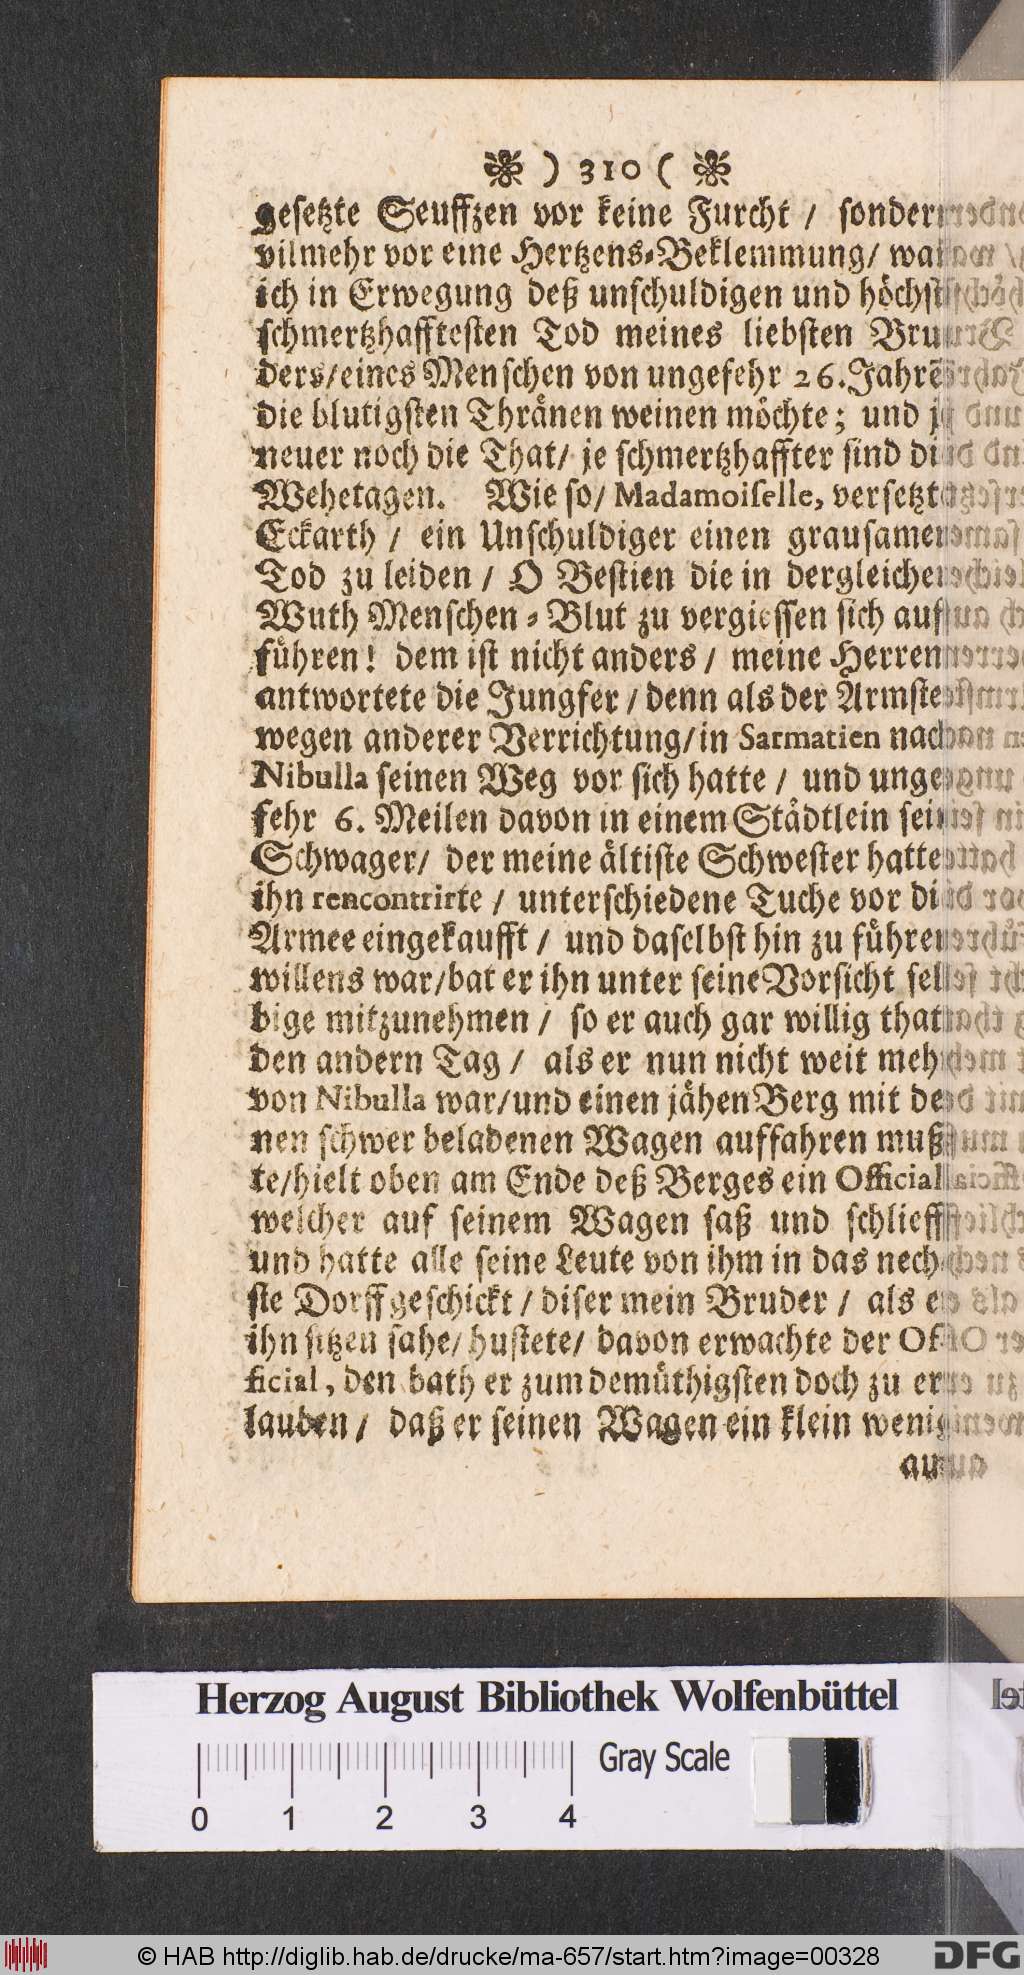 ❧ ) 310 ( ❧
gesetzte Seuffzen vor keine Furcht / sondern
vilmehr vor eine Hertzens-Beklemmung/
ich in Erwegung deß unschuldigen und höchst
schmertzhafftesten Tod meines liebsten Bru-
ders/eines Menschen von ungefehr 26. Jahrẽ
die blutigsten Thränen weinen möchte; und je
neuer noch die That/ je schmertzhaffter sind die
Wehetagen. Wie so/ Madamoiselle, versetzte
Eckarth / ein Unschuldiger einen grausamen
Tod zu leiden / O Bestien die in dergleichen
Wuth Menschen-Blut zu vergiessen sich auf
führen! dem ist nicht anders / meine Herren
antwortete die Jungfer / denn als der Armste
wegen anderer Verrichtung/in Sarmatien nach
Nibulla seinen Weg vor sich hatte / und unge-
fehr 6. Meilen davon in einem Städtlein sein
Schwager/ der meine ältiste Schwester hatte
ihn rencontrirte / unterschiedene Tuche vor die
Armee eingekaufft / und daselbst hin zu führen
willens war/bat er ihn unter seine Vorsicht sel-
bige mitzunehmen / so er auch gar willig that
den andern Tag / als er nun nicht weit mehr
von Nibulla war/und einen jähen Berg mit de-
nen schwer beladenen Wagen auffahren muß-
te/hielt oben am Ende deß Berges ein Official
welcher auf seinem Wagen saß und schlieff
und hatte alle seine Leute von ihm in das nech-
ste Dorff geschickt / diser mein Bruder / als er
ihn sitzen sahe/ hustete/ davon erwachte der Of-
ficial, den bath er zum demüthigsten doch zu er-
lauben / daß er seinen Wagen ein klein wenig
Herzog August Bibliothek Wolfenbüttel
Gray Scale
0 1 2 3 4
© HAB http://diglib.hab.de/drucke/ma-657/start.htm?image=00328
DFG